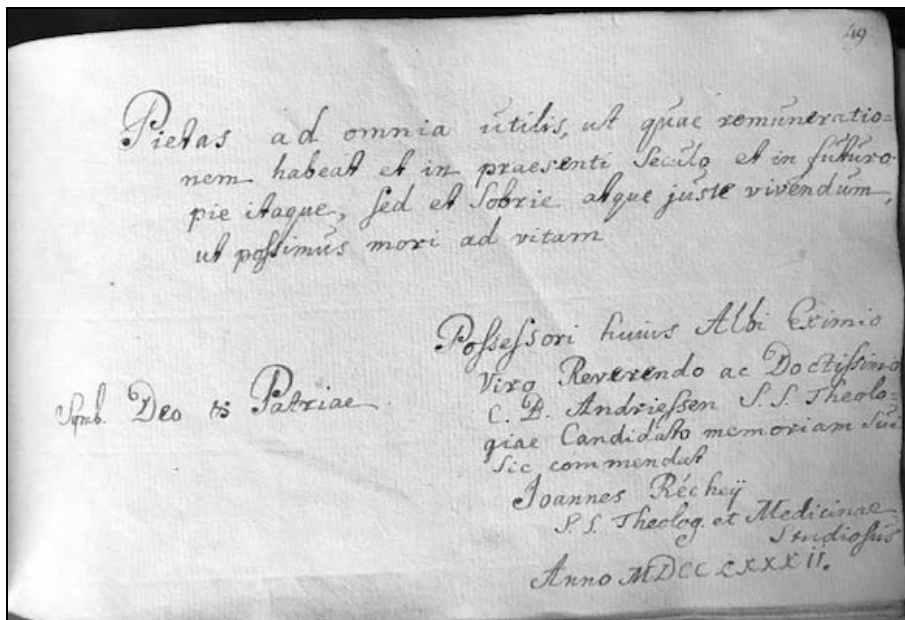 49
Pietas ad omnia utilis, ut quae remuneratio=
nem habeat et in praesenti Seculo et in futuro
pie itaque, sed et Sobrie atque juste vivendum,
ut possimus mori ad vitam
Symb. Deo & Patriae
Possessori huius Albi Eximio
Viro Reverendo ac Doctissimo
C. B. Andriessen S. S. Theolo=
giae Candidato memoriam Sui
Sic commendat
Joannes Réchey
S. S. Theolog. et Medicinae
Studiosus
Anno MDCCLXXXII.